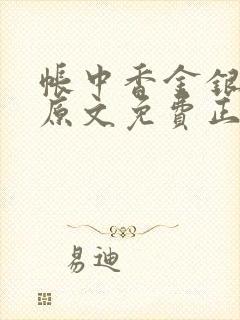 帳中香金銀
原文免費正
易迪